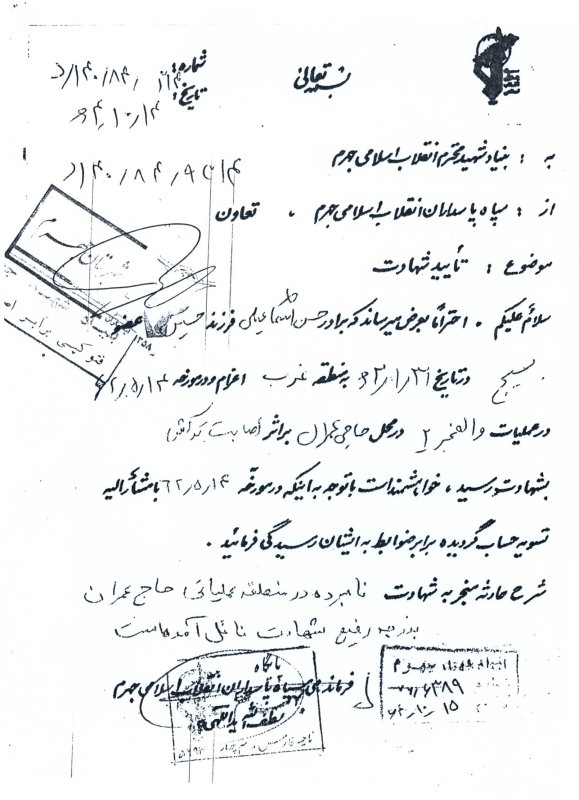 بسمه تعالی
شماره:
تاریخ:
به : بنیاد شهید محترم انقلاب اسلامی جهرم
از : سپاه پاسداران انقلاب اسلامی جهرم . تعاون
موضوع : تأیید شهادت
سلام علیکم . احتراماً بعرض میرساند که برادر حسن اسماعیلی فرزند حسین عضو
بسیج در تاریخ ۶۲/۱/۳۱ به منطقه غرب اعزام و در مورخه ۶۲/۵/۱۴
در عملیات والفجر ۲ در محل حاجی عمران بر اثر اصابت
بشهادت رسید ، خواهشمند است با توجه به اینکه در مورخه ۶۲/۵/۱۴ با مشارالیه
تسویه حساب گردیده برابر ضوابط به ایشان رسیدگی فرمائید .
شرح حادثه منجر به شهادت نامبرده در منطقه عملیاتی حاج عمران
بدرجه رفیع شهادت نائل آمده است
پایگاه
فرماندهی سپاه پاسداران انقلاب اسلامی جهرم